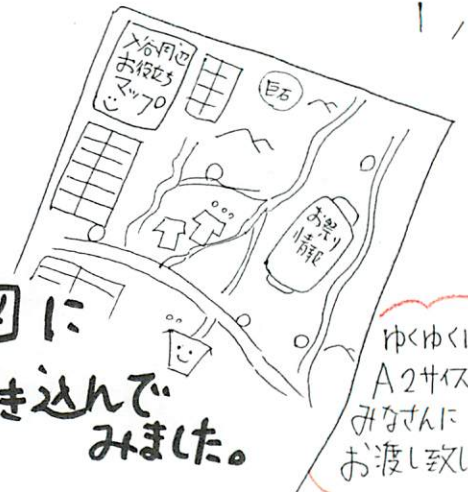 〆谷周辺
お役立ち
マップ
巨石
お祭り
情報
図に
き込んで
みました。
ゆくゆくは
A2サイズ
みなさんに
お渡し致し